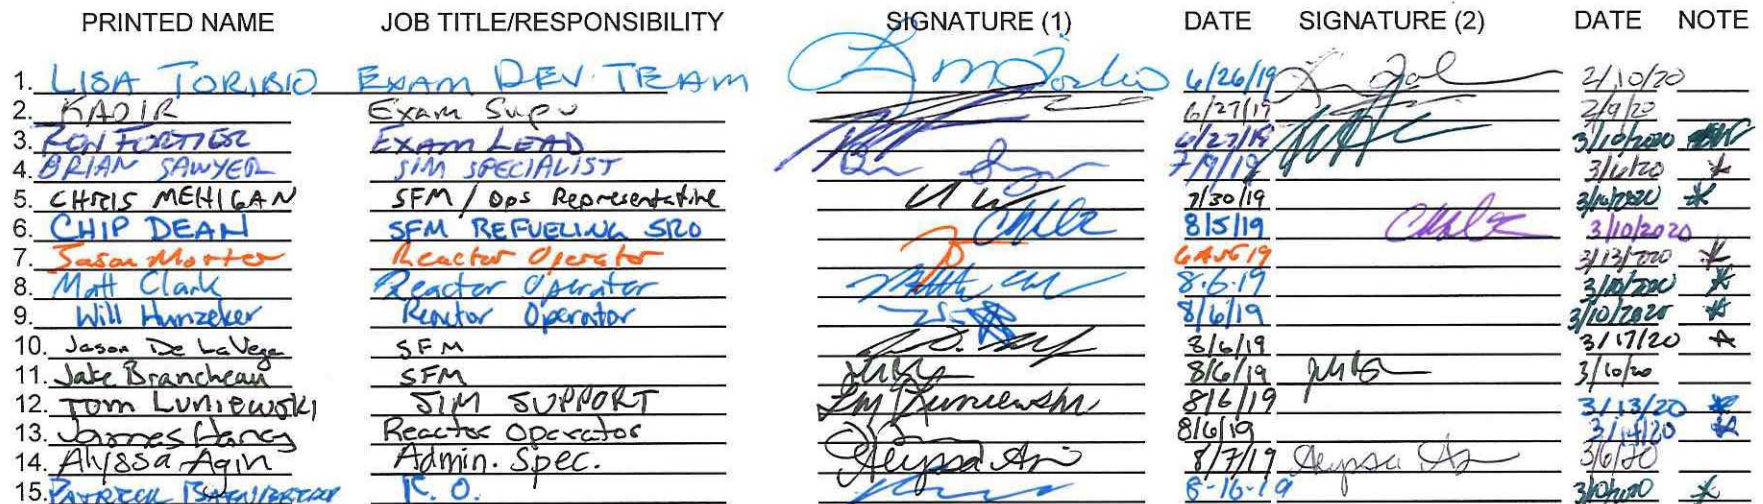 PRINTED NAME JOB TITLE/RESPONSIBILITY SIGNATURE (1) DATE SIGNATURE (2) DATE NOTE
1. LISA TORIBIO EXAM DEV TEAM 6/26/19 2/10/20
2. KADIR Exam Supv 6/27/19 2/9/20
3. RON FORTIER EXAM LEAD 6/27/19 3/10/2020
4. BRIAN SAWYER SIM SPECIALIST 7/9/19 3/6/20 *
5. CHRIS MEHIGAN SFM / Ops Representative 7/30/19 3/10/2020 *
6. CHIP DEAN SFM REFUELING SRO 8/5/19 3/10/2020
7. Jason Morter Reactor Operator 6AUG19 3/13/2020 *
8. Matt Clark Reactor Operator 8.6.19 3/10/2020 *
9. Will Hunzeker Reactor Operator 8/6/19 3/10/2020 *
10. Jason De La Vega SFM 8/6/19 3/17/20 *
11. Jake Brancheau SFM 8/6/19 3/10/20
12. TOM LUNIEWSKI SIM SUPPORT Luniewski 8/6/19 3/13/20 *
13. James Haney Reactor Operator 8/6/19 3/14/20 *
14. Alyssa Agin Admin. Spec. Alyssa 8/7/19 Alyssa 3/6/20
15. PATRICK R.O. 8-16-19 3/10/2020 *